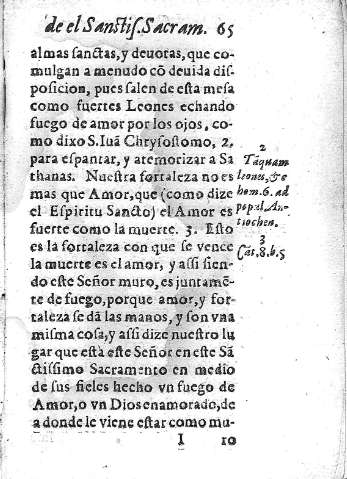 de el Sanctiſ. Sacram. 65
almas sanctas, y deuotas, que co-
mulgan a menudo cõ deuida diſ-
poſicion, pues ſalen de eſta meſa
como fuertes Leones echando
fuego de amor por los ojos, co-
mo dixo S. Iuã Chryſoſtomo, 2.
para eſpantar, y atemorizar a Sa
thanas. Nueſtra fortaleza no es
mas que Amor, que (como dize
el Eſpiritu Sancto) el Amor es
fuerte como la muerte. 3. Eſto
es la fortaleza con que ſe vence
la muerte es el amor, y aſſi ſien-
do eſte Señor muro, es juntamẽ-
te de fuego, porque amor, y for-
taleza ſe dã las manos, y ſon vna
miſma coſa, y aſſi dize nueſtro lu
gar que eſtà eſte Señor en eſte Sã
ctiſſimo Sacramento en medio
de ſus fieles hecho vn fuego de
Amor, o vn Dios enamorado, de
a donde le viene eſtar como mu-
I ro
2
Tãquam
leones, &
hom. 6. ad
popul. An-
tiochen.
3
Cãt. 8. b. 5